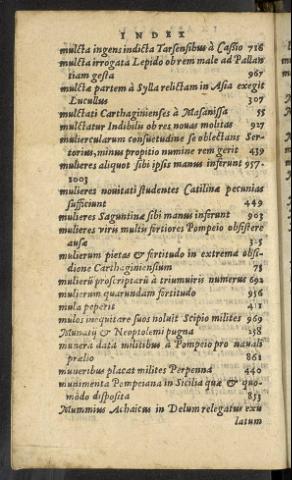 INDEX
mulcta ingens indicta Tarsensibus à Cassio 716
mulcta irrogata Lepido ob rem male ad Pallan
tiam gesta 967
mulctæ partem à Sylla relictam in Asia exegit
Lucullus 307
mulctati Carthaginienses à Masanissa 55
mulctatur Indibilis ob res nouas molitas 927
muliercularum consuetudine se oblectans Ser-
torius, minus propitio numine rem gerit 439
mulieres aliquot sibi ipsis manus inferunt 957.
1003
mulieres nouitati studentes Catilinæ pecunias
sufficiunt 449
mulieres Saguntinæ sibi manus inferunt 903
mulieres viris multis fortiores Pompeio obsistere
ausæ
mulierum pietas & fortitudo in extrema obsi-
dione Carthaginiensium 75
mulierū proscriptarū à triumuiris numerus 692
mulierum quarundam fortitudo 956
mula peperit
mulos inequitare suos noluit Scipio milites 969
Munatij & Neoptolemi pugna 258
munera data militibus à Pompeio pro nauali
prælio 861
muneribus placat milites Perpenna 440
munimenta Pompeiana in Sicilia quæ & quo-
modo disposita 853
Mummius Achaicus in Delum relegatus exu
latum